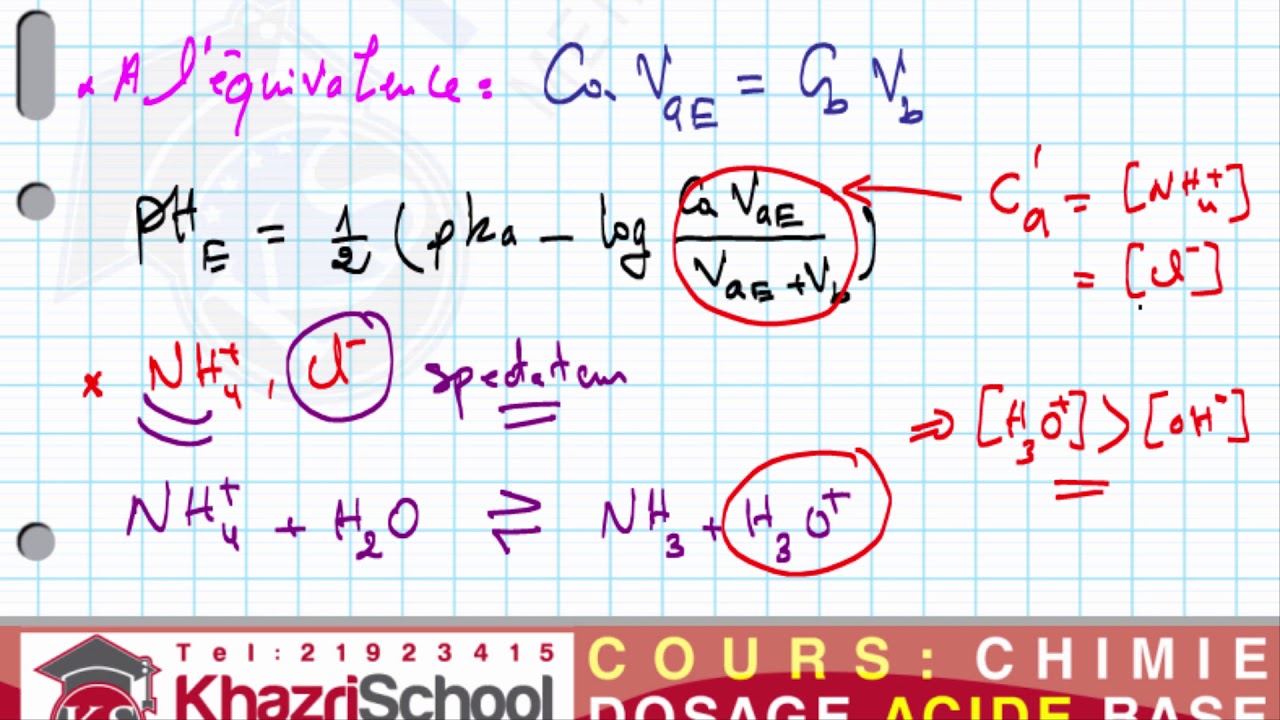 * A l'équivalence : Ca VaE = Cb Vb
pHE = 1/2 (pka - log Ca VaE / VaE + Vb)
C'a = [NH4+]
= [Cl-]
* NH4+, Cl- spectateur
⇒ [H3O+] > [OH-]
NH4+ + H2O ⇄ NH3 + H3O+
Tel:21923415
KhazriSchool
COURS: CHIMIE
DOSAGE ACIDE BASE